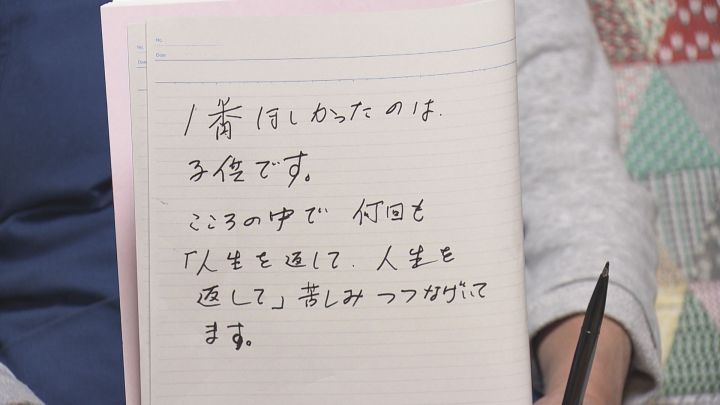 No.
Date
1番ほしかったのは.
子供です。
こころの中で 何回も
「人生を返して. 人生を
返して」苦しみつつなげいて
ます。